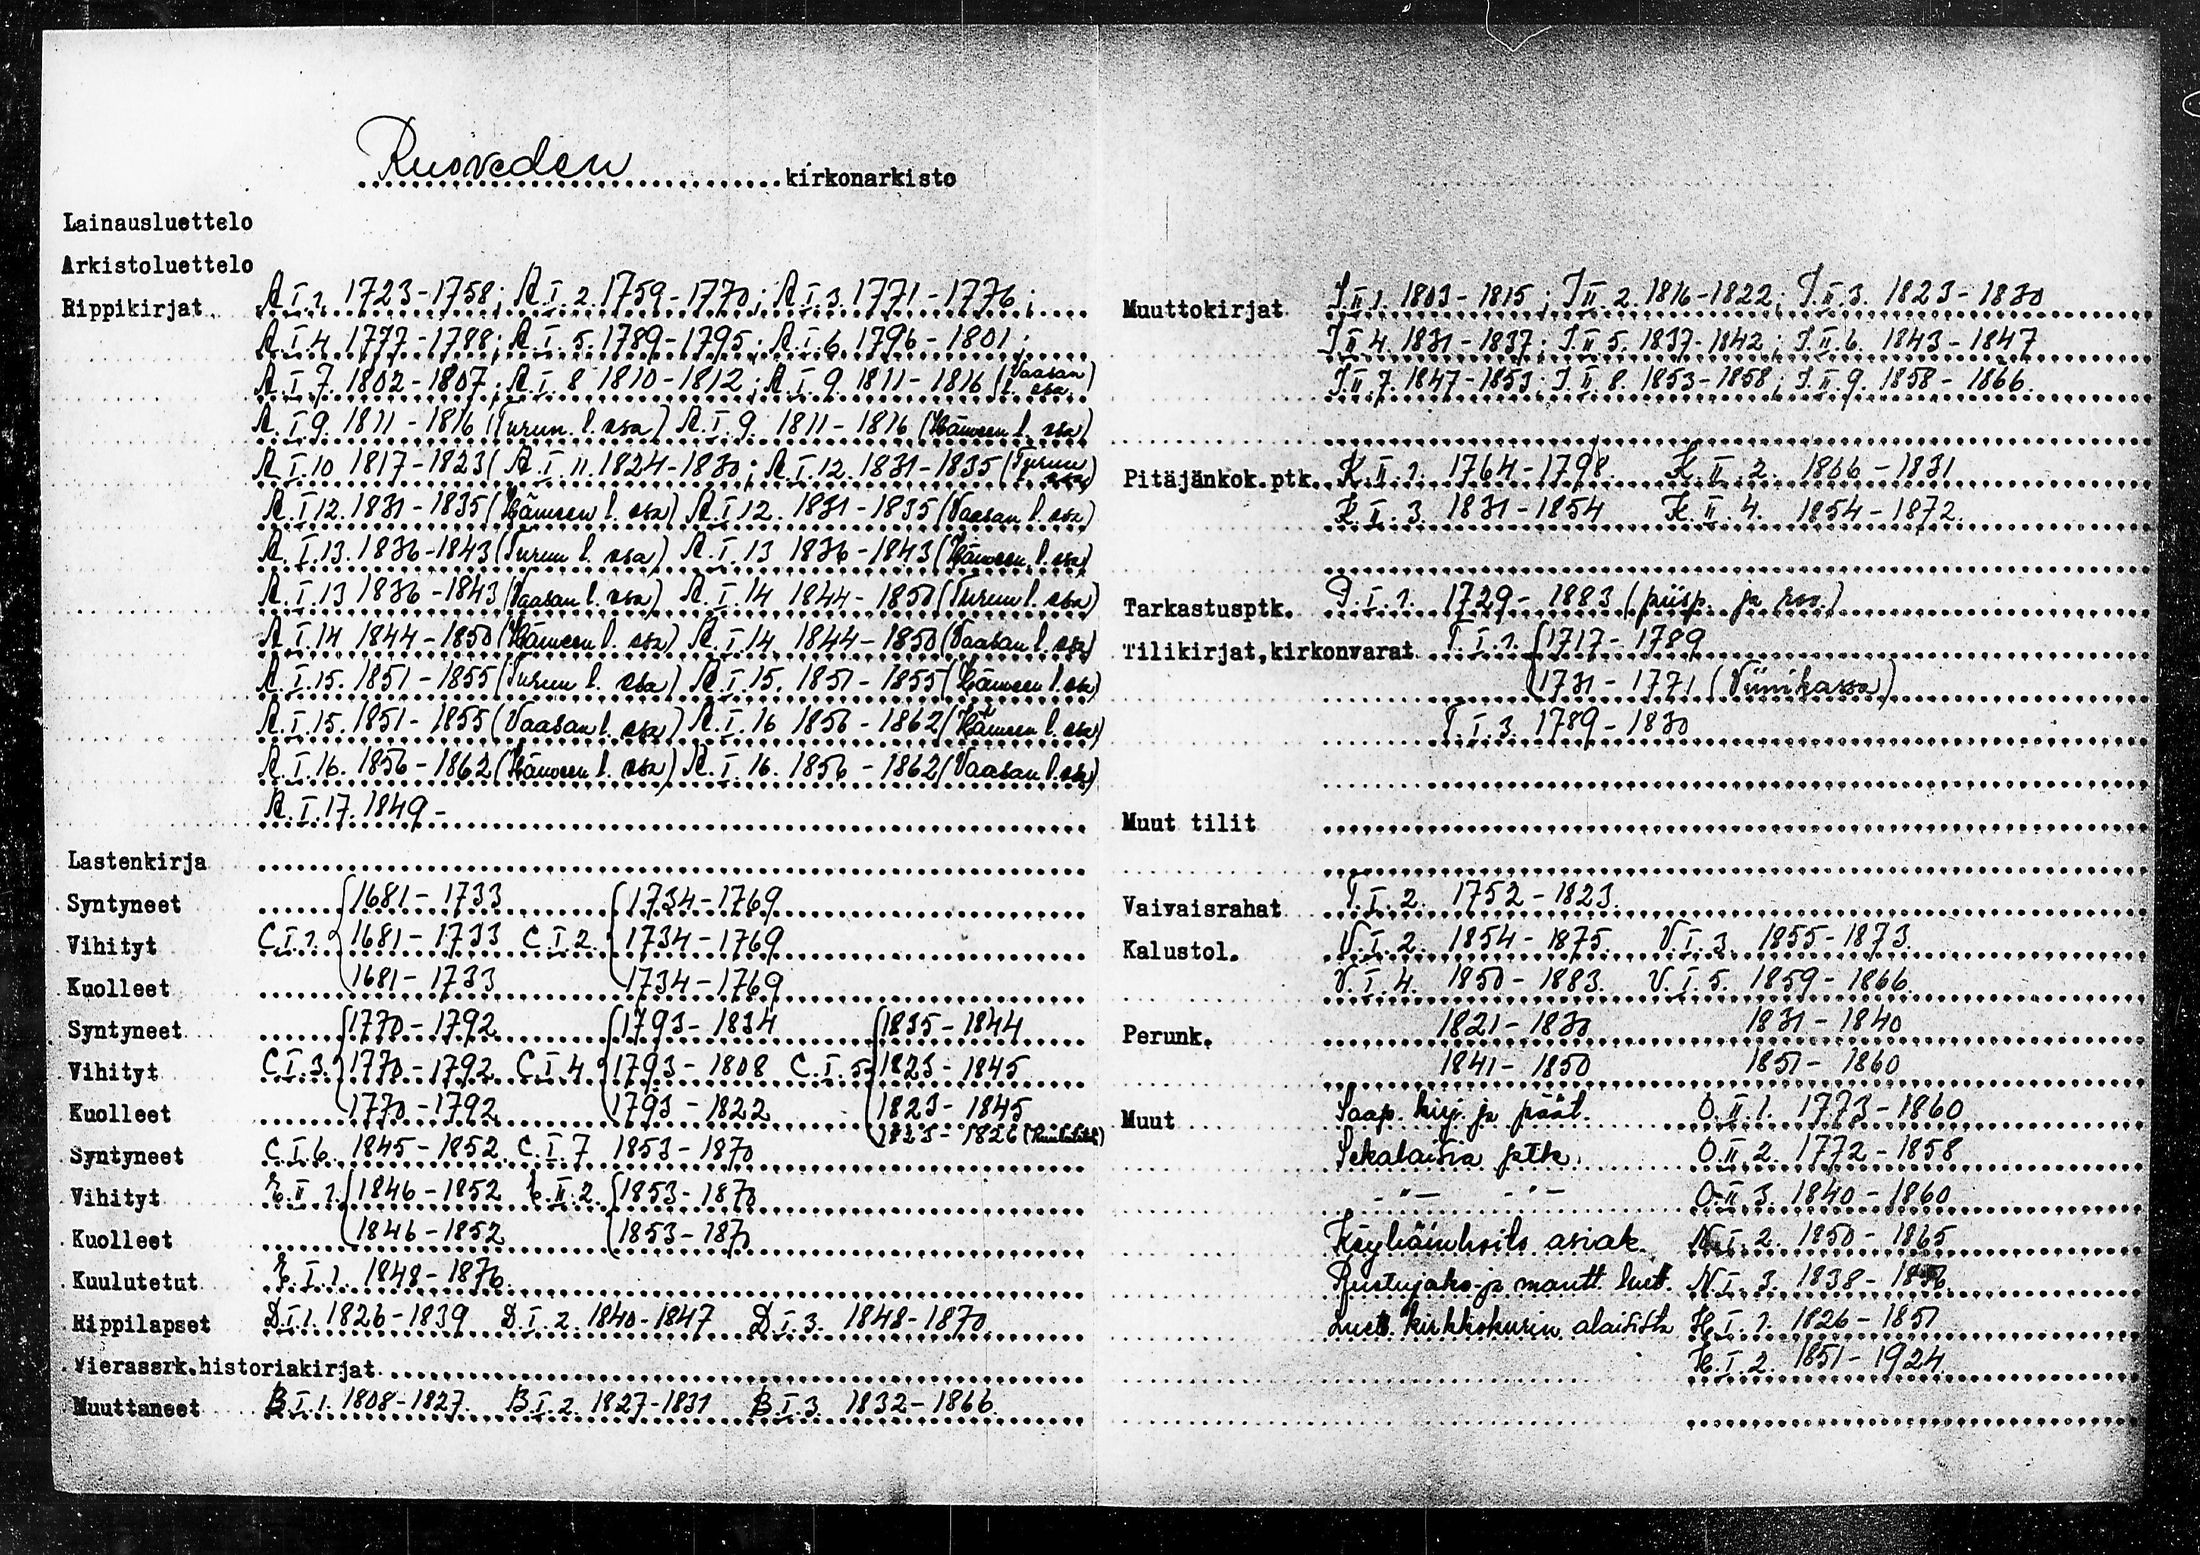 Ruoveden kirkonarkisto
Lainausluettelo
Arkistoluettelo
Rippikirjat A.I.1. 1723-1758; A.I.2. 1759-1770; A.I.3. 1771-1776;
A.I.4. 1777-1788; A.I.5. 1789-1795; A.I.6. 1796-1801;
A.I.7. 1802-1807; A.I.8 1810-1812; A.I.9. 1811-1816 (Vaasan l. osa)
A.I.9. 1811-1816 (Turun l. osa) A.I.9. 1811-1816 (Hämeen l. osa)
A.I.10 1817-1823( A.I.11. 1824-1830; A.I.12. 1831-1835 (Turun l. osa)
A.I.12. 1831-1835 (Hämeen l. osa) A.I.12. 1831-1835 (Vaasan l. osa)
A.I.13. 1836-1843 (Turun l. osa) A.I.13 1836-1843 (Hämeen l. osa)
A.I.13 1836-1843 (Vaasan l. osa) A.I.14 1844-1850 (Turun l. osa)
A.I.14 1844-1850 (Hämeen l. osa) A.I.14. 1844-1850 (Vaasan l. osa)
A.I.15. 1851-1855 (Turun l. osa) A.I.15. 1851-1855 (Hämeen l. osa)
A.I.15. 1851-1855 (Vaasan l. osa) A.I.16 1856-1862 (Hämeen l. osa)
A.I.16. 1856-1862 (Hämeen l. osa) A.I.16. 1856-1862 (Vaasan l. osa)
A.I.17. 1849-
Lastenkirja
Syntyneet 1681-1733 1734-1769
Vihityt C.I.1. 1681-1733 C.I.2. 1734-1769
Kuolleet 1681-1733 1734-1769
Syntyneet 1770-1792 1793-1834 1835-1844
Vihityt C.I.3. 1770-1792 C.I.4. 1793-1808 C.I.5. 1823-1845
Kuolleet 1770-1792 1793-1822 1823-1845
1823-1826
Syntyneet C.I.6. 1845-1852. C.I.7 1853-1870
Vihityt II.1. 1846-1852 II.2. 1853-1870
Kuolleet 1846-1852 1853-187
Kuulutetut I.1. 1848-1876.
Rippilapset D.I.1. 1826-1839 D.I.2. 1840-1847 D.I.3. 1848-1870
Vierassrk.historiakirjat
Muuttaneet B.I.1. 1808-1827. B.I.2. 1827-1831 B.I.3. 1832-1866.
Muuttokirjat J.II.1. 1803-1815; J.II.2. 1816-1822; J.II.3. 1823-1830
J.II.4. 1831-1837; J.II.5. 1837-1842; J.II.6. 1843-1847
J.II.7. 1847-1853; J.II.8. 1853-1858; J.II.9. 1858-1866.
Pitäjänkok.ptk. K.II.1. 1764-1798. K.II.2. 1806-1831
K.II.3. 1831-1854 K.II.4. 1854-1872.
Tarkastusptk. I.1. 1729-1883 (piisp. ja rov.)
Tilikirjat,kirkonvarat T.I.1. 1717-1789
1731-1771 (Viinikassa)
T.I.3. 1789-1830
Muut tilit
Vaivaisrahat T.I.2. 1752-1823.
Kalustol. V.I.2. 1854-1875. V.I.3. 1855-1873.
V.I.4. 1850-1883. V.I.5. 1859-1866.
Perunk. 1821-1830 1831-1840
1841-1850 1851-1860
Muut Saap. kirj. ja päät. O.II.1. 1773-1860
Sekalaisia ptk. O.II.2. 1772-1858
-"- -"- O.II.3. 1840-1860
Köyhäinhoito asiak. N.I.2. 1850-1865
Rustujako- ja mantt. luet. N.I.3. 1838-
Luett. kirkkokurin alaisista H.I.1. 1826-1851
H.I.2. 1851-1924.